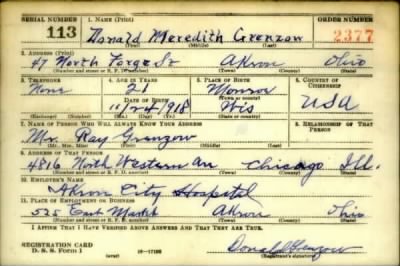 SERIAL NUMBER 1. NAME (Print) ORDER NUMBER
113 Donald Meredith Grenzow 2377
(First) (Middle) (Last)
2. ADDRESS (Print)
47 North Forge St Akron Ohio
(Number and street or R. F. D. number) (Town) (County) (State)
3. TELEPHONE 4. AGE IN YEARS 5. PLACE OF BIRTH 6. COUNTRY OF CITIZENSHIP
None 21 Monroe USA
DATE OF BIRTH (Town or county)
10/24/1918 Wis
(Exchange) (Number) (Mo.) (Day) (Yr.) (State or country)
7. NAME OF PERSON WHO WILL ALWAYS KNOW YOUR ADDRESS 8. RELATIONSHIP OF THAT PERSON
Mr. Ray Grenzow
(Mr., Mrs., Miss) (First) (Middle) (Last)
9. ADDRESS OF THAT PERSON
4816 North Western Av Chicago Ill.
(Number and street or R. F. D. number) (Town) (County) (State)
10. EMPLOYER'S NAME
Akron City Hospital
11. PLACE OF EMPLOYMENT OR BUSINESS
525 East Market Akron Ohio
(Number and street or R. F. D. number) (Town) (County) (State)
I AFFIRM THAT I HAVE VERIFIED ABOVE ANSWERS AND THAT THEY ARE TRUE.
REGISTRATION CARD
D. S. S. Form 1 16—17105 Donald Grenzow
(Registrant's signature)